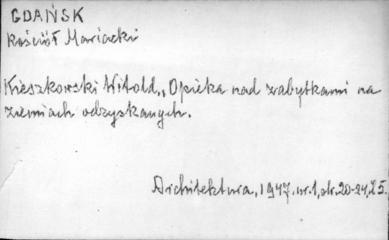 GDAŃSK
Kościół Mariacki
Kieszkowski Witold, Opieka nad zabytkami na
ziemiach odzyskanych.
Architektura, 1947, nr.1, str. 20-24, ż 5.